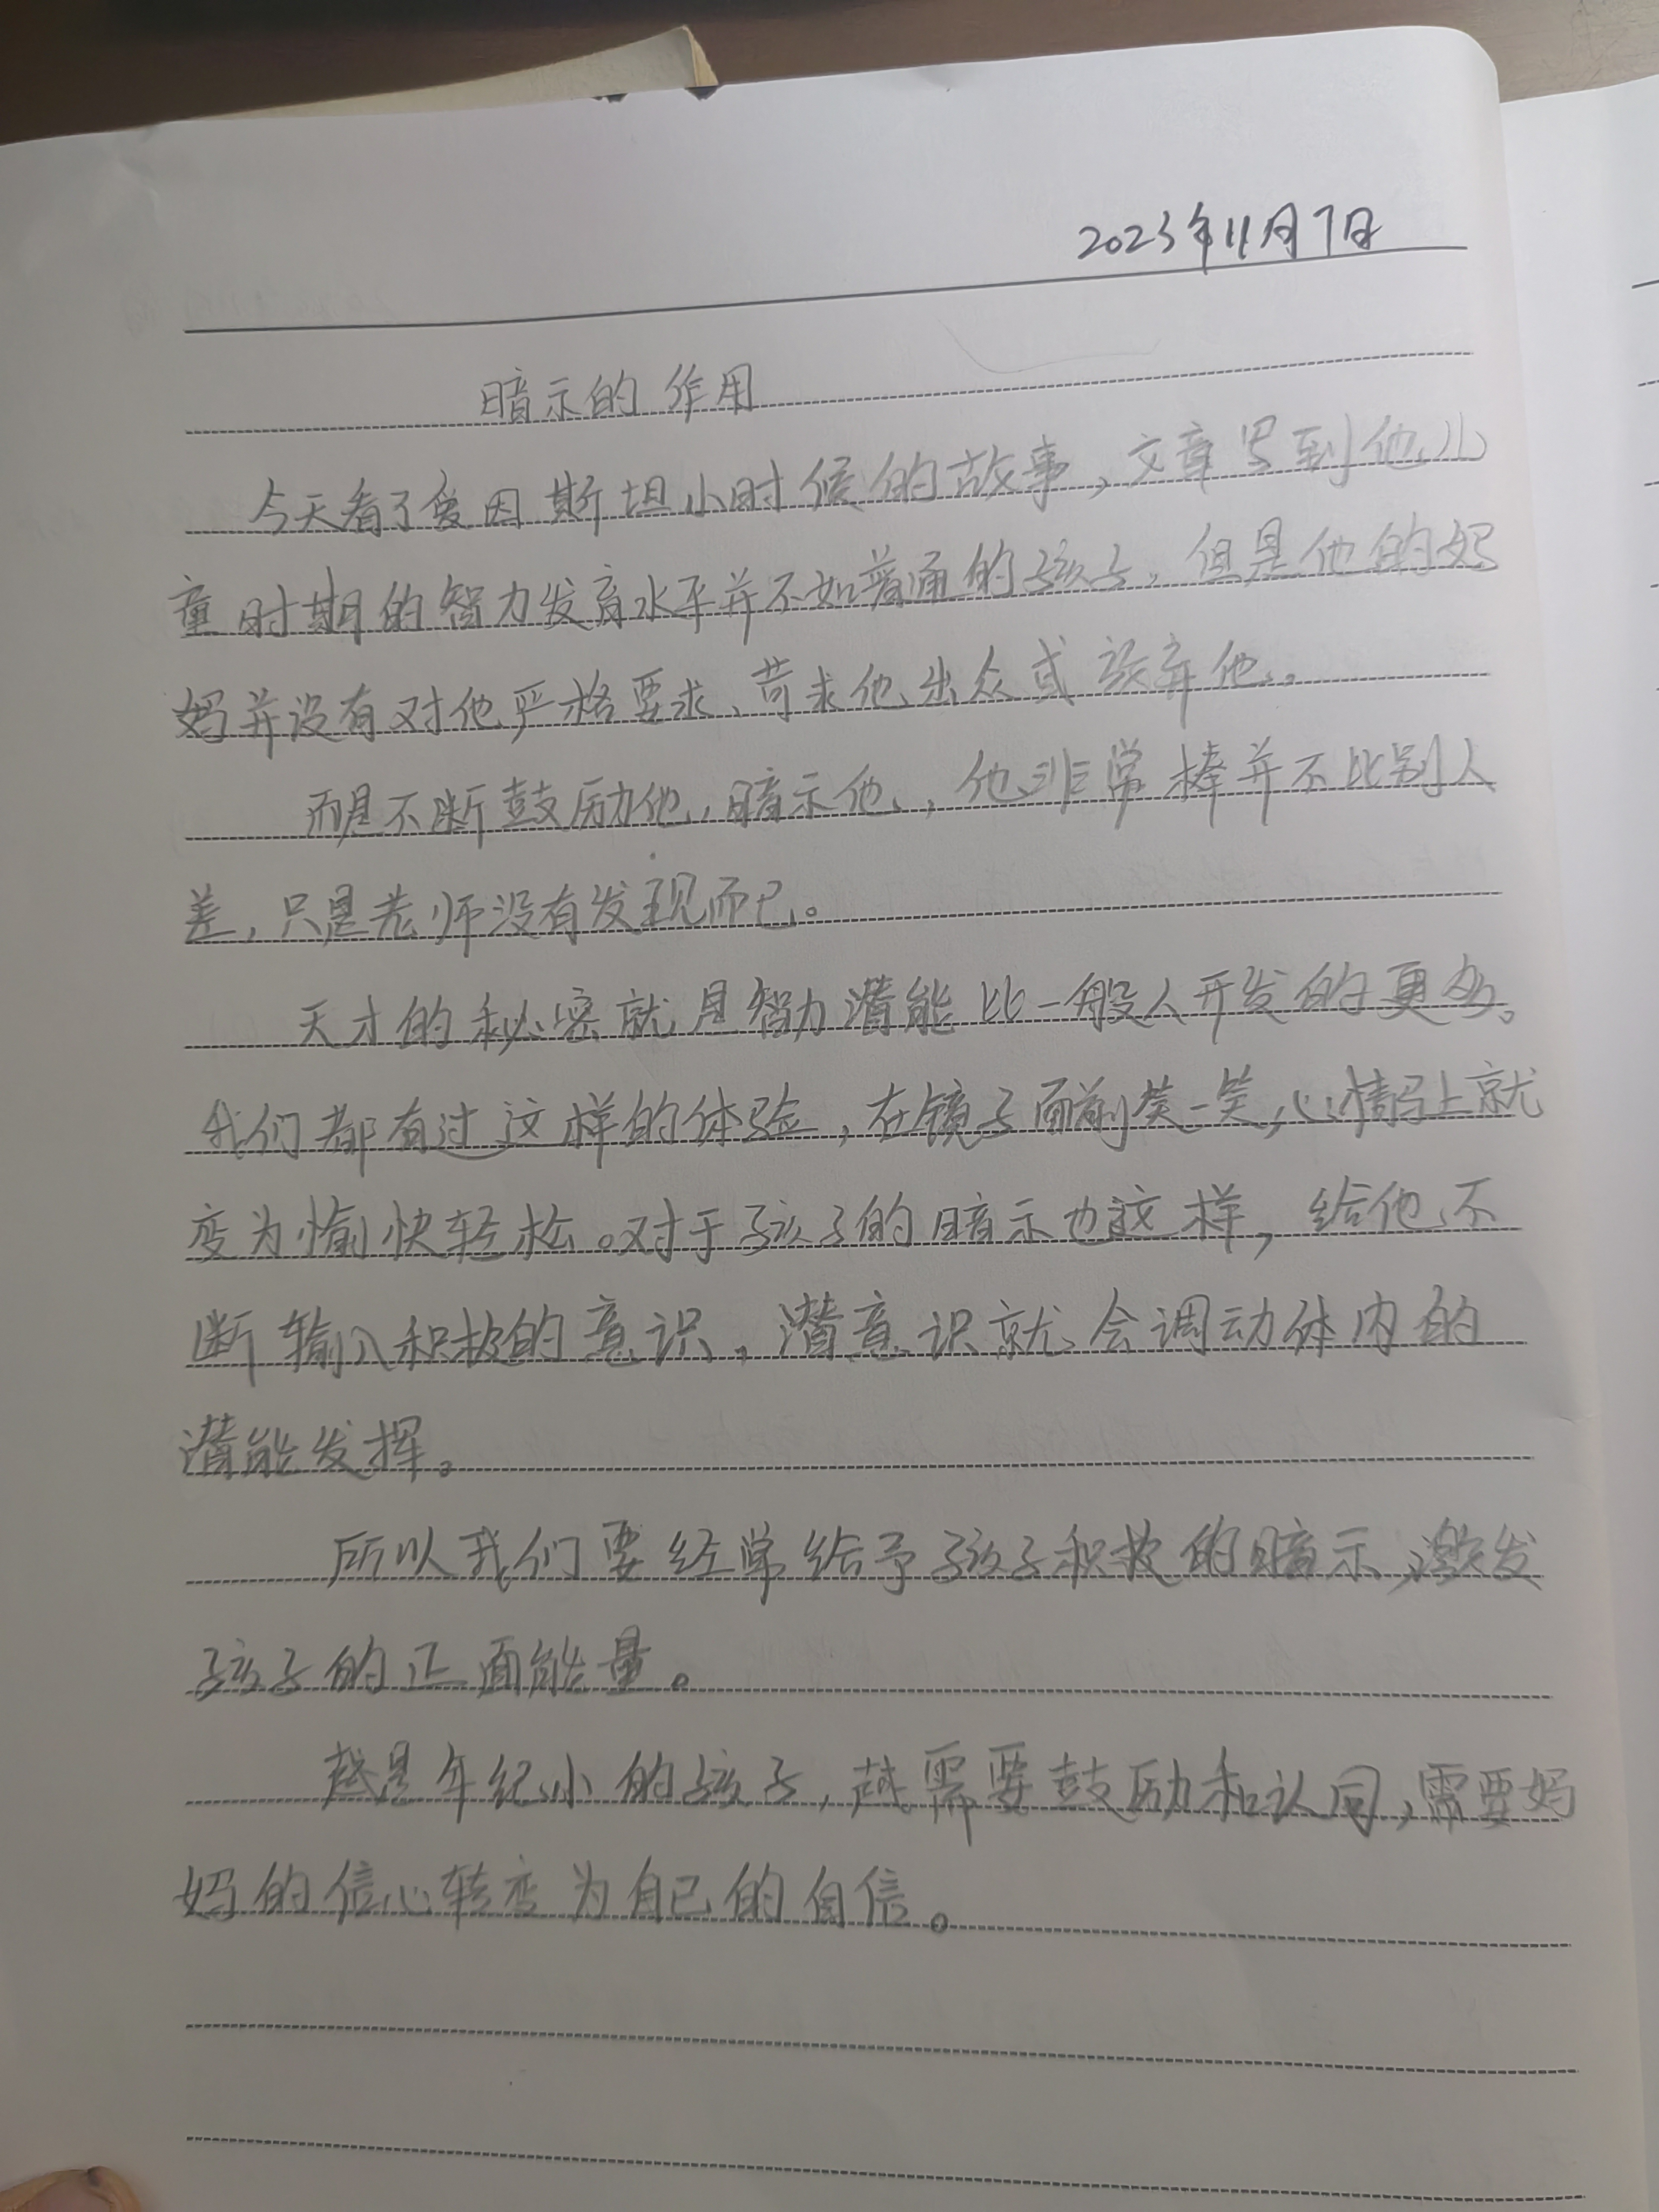 2023年11月7日
暗示的作用
今天看了爱因斯坦小时候的故事,文章写到他儿
童时期的智力发育水平并不如普通的孩子,但是他的妈
妈并没有对他严格要求、苛求他出众或放弃他。
而是不断鼓励他,暗示他,他非常棒并不比别人
差,只是老师没有发现而已。
天才的秘密就是智力潜能比一般人开发的更多。
我们都有过这样的体验,在镜子面前笑一笑,心情马上就
变为愉快轻松。对于孩子的暗示也这样,给他不
断输入积极的意识,潜意识就会调动体内的
潜能发挥。
所以我们要经常给予孩子积极的暗示,激发
孩子的正面能量。
越是年纪小的孩子,越需要鼓励和认同,需要妈
妈的信心转变为自己的自信。